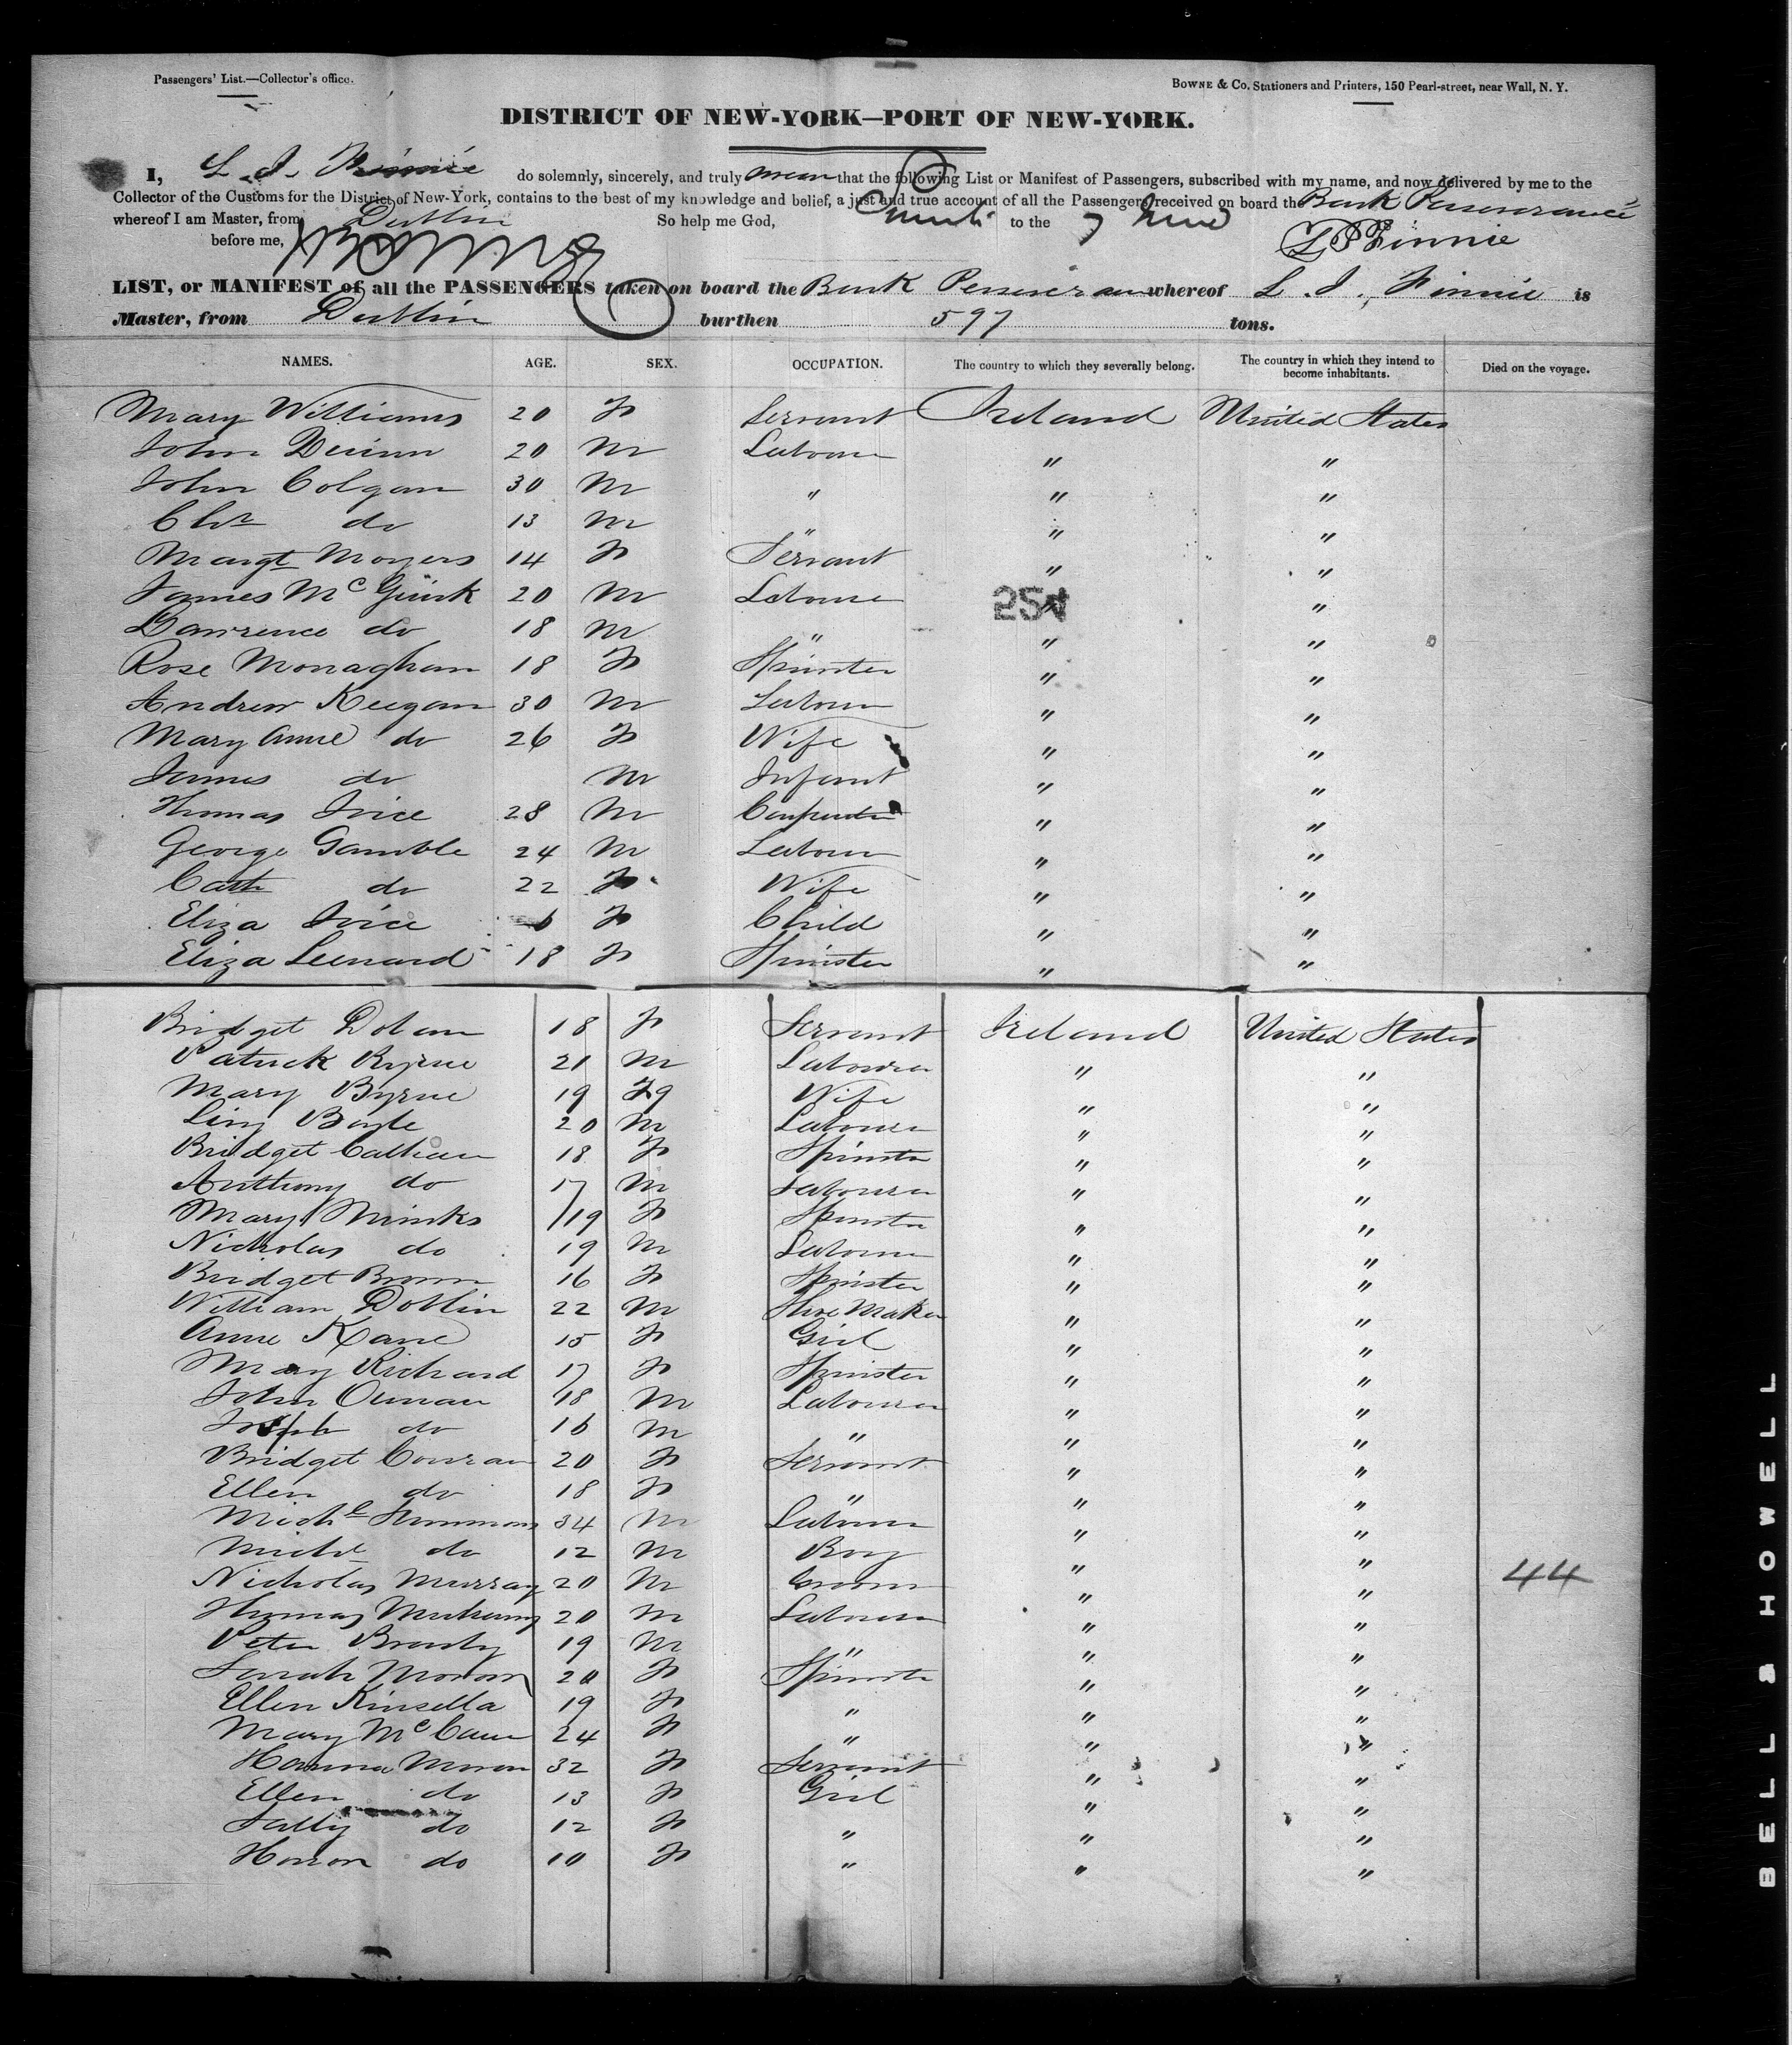 Passengers' List.—Collector's office.
BOWNE & Co. Stationers and Printers, 150 Pearl-street, near Wall, N. Y.
DISTRICT OF NEW-YORK—PORT OF NEW-YORK.
I, do solemnly, sincerely, and truly that the following List or Manifest of Passengers, subscribed with my name, and now delivered by me to the
Collector of the Customs for the District of New-York, contains to the best of my knowledge and belief, a just and true account of all the Passengers received on board the Bark Perseverance
whereof I am Master, from Dublin So help me God, to the
before me, Finnie
LIST, or MANIFEST of all the PASSENGERS taken on board the Bark whereof Finnie is
Master, from Dublin burthen 597 tons.
NAMES. AGE. SEX. OCCUPATION. The country to which they severally belong. The country in which they intend to become inhabitants. Died on the voyage.
Mary Williams 20 F Servant Ireland United States
John 20 M Labourer " "
John Colgan 30 M " " "
do 13 M " " "
Margt Moyers 14 F Servant " "
James 20 M Labourer " "
254
Lawrence do 18 M " " "
Rose Monaghan 18 F Spinster " "
Andrew Keegan 30 M Labour " "
Mary Anne do 26 F Wife " "
James do M Infant " "
Thomas 28 M Carpenter " "
George Gamble 24 M Labour " "
Cath do 22 F Wife " "
Eliza 6 F Child " "
Eliza Leenard 18 F Spinster " "
Bridget Dolan 18 F Servant Ireland United States
Patrick Byrne 21 M Labourer " "
Mary Byrne 19 F Wife " "
Boyle 20 M Labourer " "
Bridget 18 F Spinster " "
Anthony do 17 M Labourer " "
Mary 19 F Spinster " "
Nicholas do 19 M Labour " "
Bridget Brown 16 F Spinster " "
William Doblin 22 M Shoe Maker " "
Anne Kane 15 F Girl " "
Mary Richard 17 F Spinster " "
John 18 M Labourer " "
Joseph do 16 M " " "
Bridget Conran 20 F Servant " "
Ellen do 18 F " " "
Michl 34 M Labour " "
Michl do 12 M Boy " "
Nicholas Murray 20 M Groom " " 44
Thomas 20 M Labourer " "
Peter Brady 19 M " " "
Sarah 20 F Spinster " "
Ellen Kinsella 19 F " " "
Mary McCann 24 F " " "
Hanna Moran 32 F Servant " "
Ellen do 13 F Girl " "
Sally do 12 F " " "
Honor do 10 F " " "
BELL & HOWELL